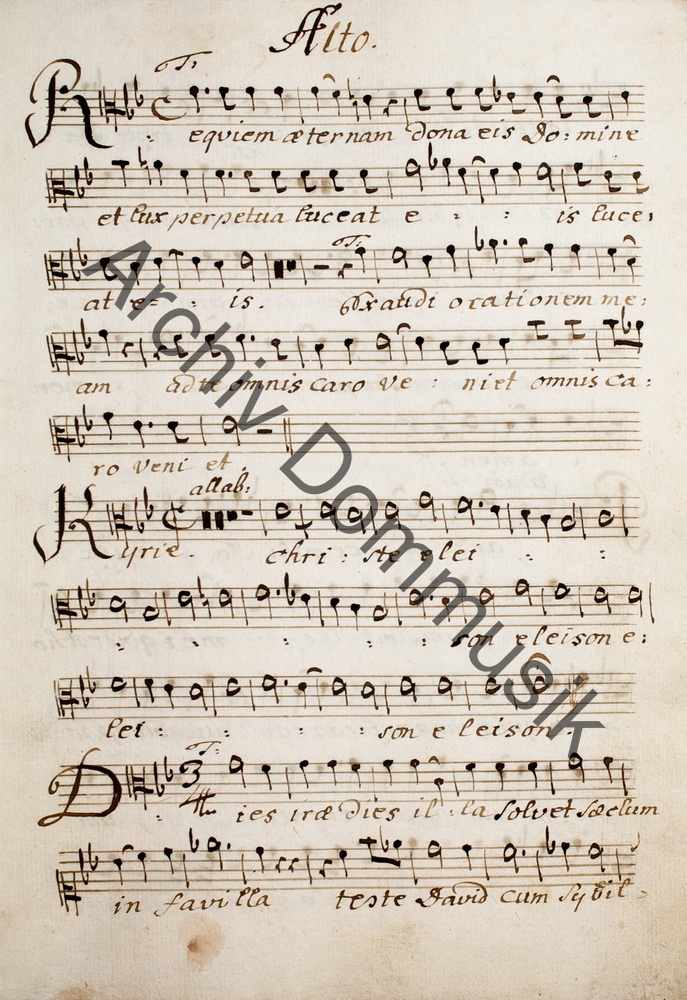 Alto.
T:
Requiem æternam dona eis Do: mine
et lux perpetua luceat e : : is luce:
T:
at e : : is. Exaudi orationem me:
am ad te omnis caro ve : niet omnis ca:
ro veni et.
allab:
Kyrie. chri : ste elei : :
: : : : son eleison e:
lei : : : : son e leison.
T:
3/4
Dies iræ dies il : la solvet sæclum
in favilla teste David cum sybil:
Archiv Dommusik